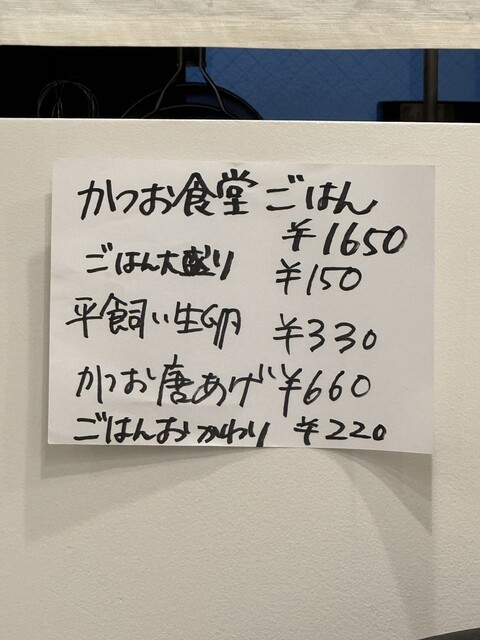 かつお食堂 ごはん
¥1650
ごはん大盛り ¥150
平飼い生卵 ¥330
かつお唐あげ ¥660
ごはんおかわり ¥220